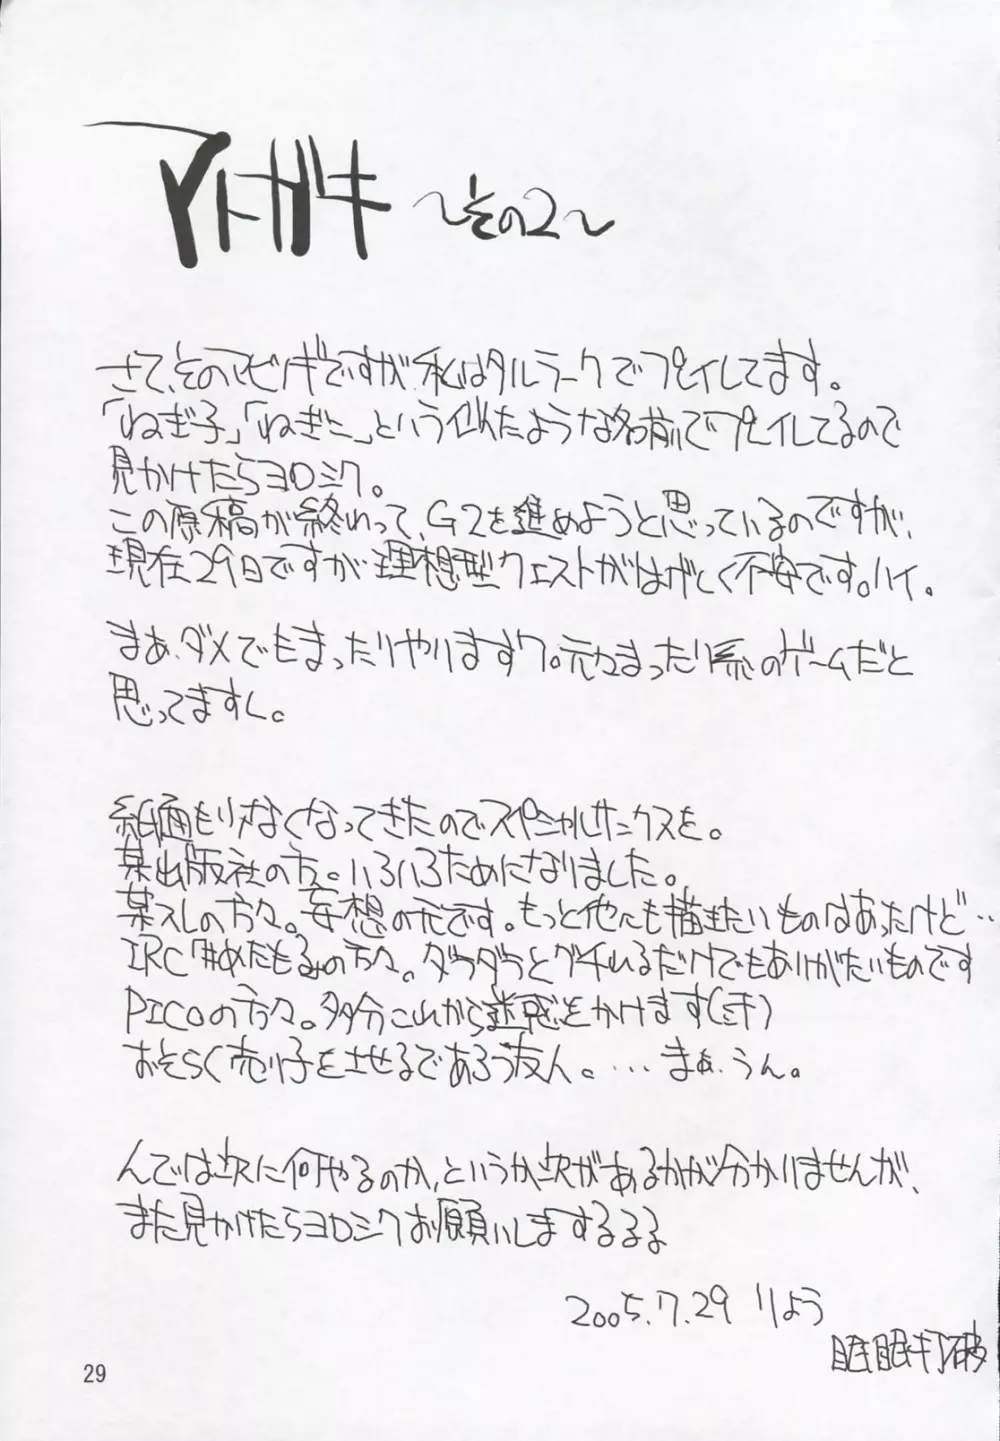 アトガキ ～その2～
さて、そのマビノギですが、私はタルラークでプレイしてます。
「ねぎ子」「ねぎこ」という似たような名前でプレイしてるので
見かけたらヨロシク。
この原稿が終わって、G2を進めようと思っているのですが、
現在29日ですが理想型クエストがはげしく不安です。ハイ。
まぁ、ダメでもまったりやりますワ。元々まったり系のゲームだと
思ってますし。
紙面もリナなくなってきたのでスペシャルサンクスを。
某出版社の方。いろいろためになりました。
某スレの方々。妄想の元です。もっと他にも描きたいものはあったけど…
IRC「#めだもる」の方々。ダラダラとグチれるだけでもありがたいものです
PICOの方々。多分これから迷惑をかけます(まて)
おそらく売り子をさせるであろう友人。…まぁ、うん。
んでは次に何やるのか、というか次があるかが分かりませんが、
また見かけたらヨロシクお願いしまするるる
2005.7.29 りょう
眠眠打破
29